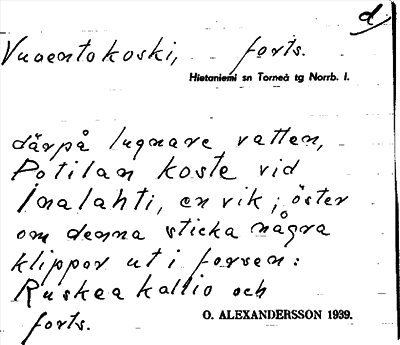 d
Vuoentokoski, forts.
Hietaniemi sn Torneå tg Norrb. l.
därpå lugnare vatten,
Potilan koste vid
Inalahti, en vik; öster
om denna sticka några
klippor ut i forsen:
Ruskeakallio och
forts.
O. ALEXANDERSSON 1939.